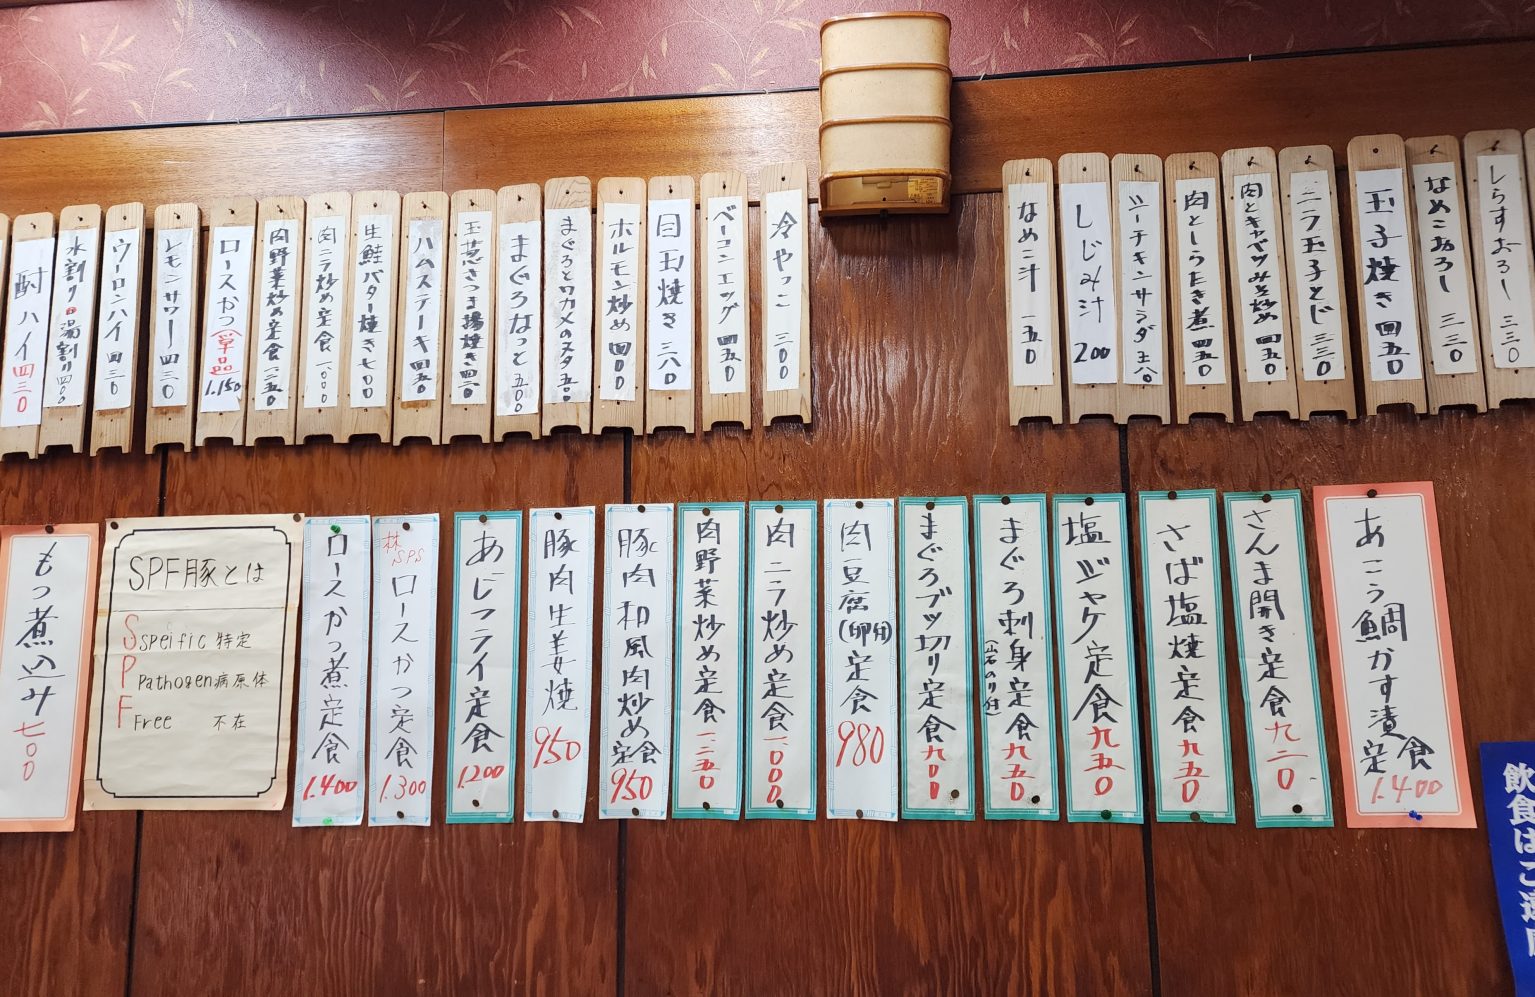 しらすおろし 三三〇
なめこおろし 三三〇
玉子焼き 四五〇
ニラ玉子とじ 三三〇
肉とキャベツみそ炒め 四五〇
肉としらたき煮 四五〇
ツーチキンサラダ 三八〇
しじみ汁 200
なめこ汁 一五〇
冷やっこ 三〇〇
ベーコンエッグ 四五〇
目玉焼き 三八〇
ホルモン炒め 四〇〇
まぐろとワカメのヌタ 五〇〇
まぐろなっと 五〇〇
玉葱さつま揚焼き 四三〇
ハムステーキ 四五〇
生鮭バター焼き 七〇〇
肉ニラ炒め定食 一、〇〇〇
肉野菜炒め定食 一、二五〇
ロースかつ(単品) 1.150
レモンサワー 四三〇
ウーロンハイ 四三〇
水割り 湯割り 四〇〇
酎ハイ 四三〇
あこう鯛かす漬定食 1.400
さんま開き定食 九二〇
さば塩焼定食 九五〇
塩ジャケ定食 九五〇
まぐろ刺身定食 (岩のり付) 九五〇
まぐろブツ切り定食 九〇〇
肉豆腐(卵付)定食 980
肉ニラ炒め定食 一、〇〇〇
肉野菜炒め定食 一、二五〇
豚肉和風肉炒め定食 950
豚肉生姜焼 950
あじフライ定食 1.200
林SPS ロースかつ定食 1.300
ロースかつ煮定食 1.400
SPF豚とは
Speific 特定
Pathogen 病原体
Free 不在
もつ煮込み 七〇〇
飲食はご遠